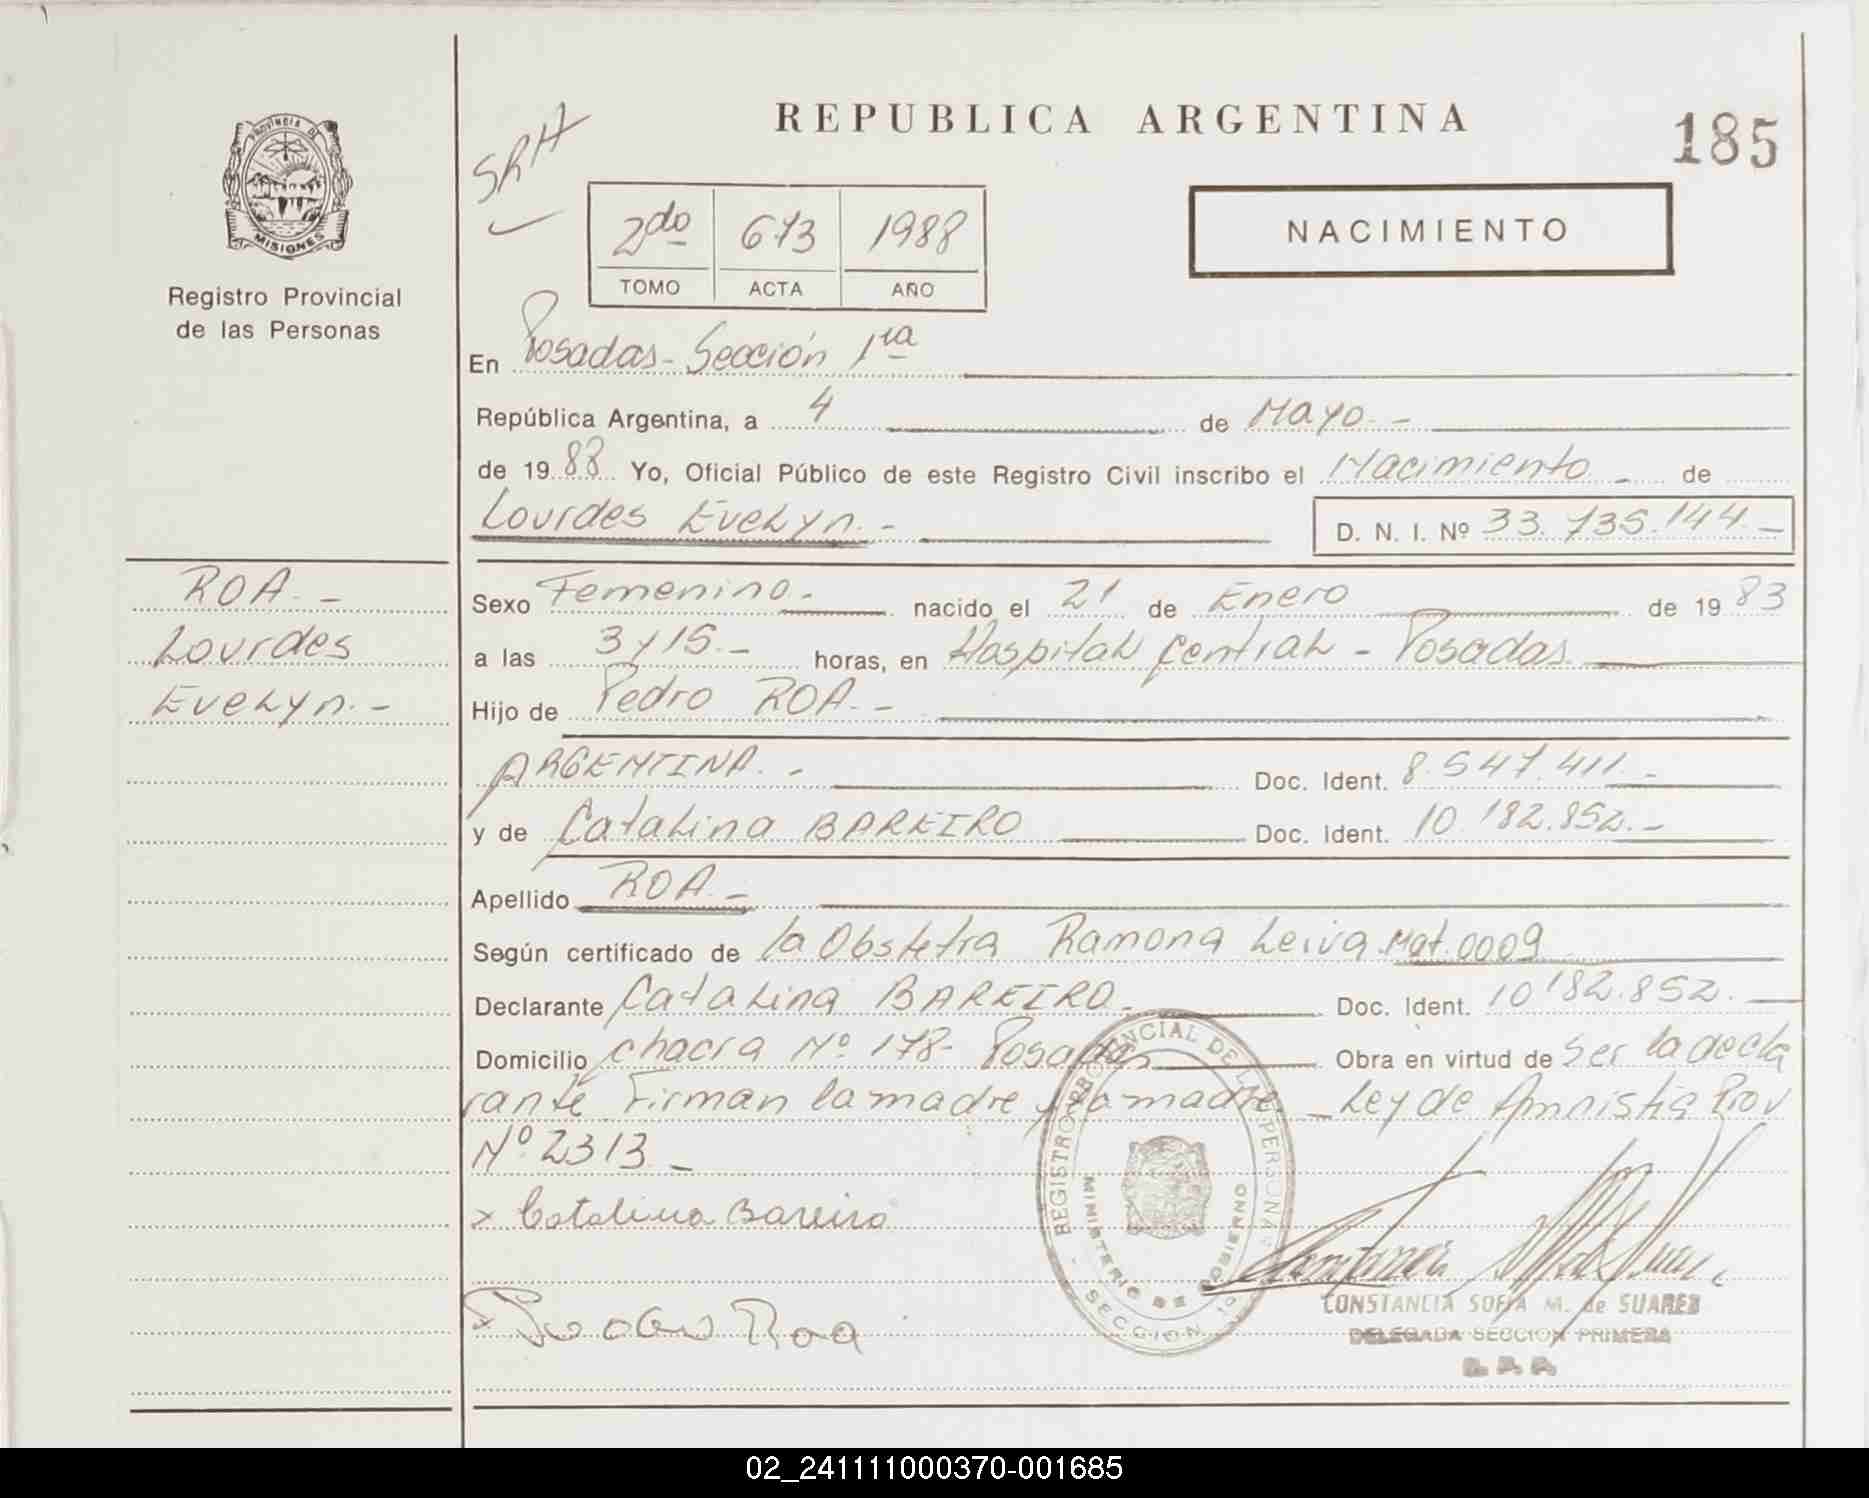 REPUBLICA ARGENTINA
185
SRH
PROVINCIA DE
MISIONES
Registro Provincial
de las Personas
2do 673 1988
TOMO ACTA AÑO
NACIMIENTO
En Posadas - Sección 1ra
República Argentina, a 4 de Mayo. -
de 19 88 Yo, Oficial Público de este Registro Civil inscribo el Nacimiento - de
Lourdes Evelyn. -
D. N. I. Nº 33.735.144 -
ROA. -
Lourdes
Evelyn. -
Sexo Femenino. - nacido el 21 de Enero de 19 83
a las 3 y 15. - horas, en Hospital Central - Posadas
Hijo de Pedro ROA. -
ARGENTINA. - Doc. Ident. 8.547.411. -
y de Catalina BAREIRO Doc. Ident. 10.182.852. -
Apellido ROA. -
Según certificado de la Obstetra Ramona Leiva Mat. 0009
Declarante Catalina BAREIRO - Doc. Ident. 10.182.852. -
Domicilio chacra Nº 178 - Posadas Obra en virtud de ser la decla
rante Firman la madre y la madre - Ley de Amnistia Prov
Nº 2313 -
x Catalina Bareiro
x Pedro Roa
REGISTRO PROVINCIAL DE LAS PERSONAS
MINISTERIO DE GOBIERNO
SECCION 1ª
CONSTANCIA SOFIA M. de SUAREZ
DELEGADA SECCION PRIMERA
02_241111000370-001685